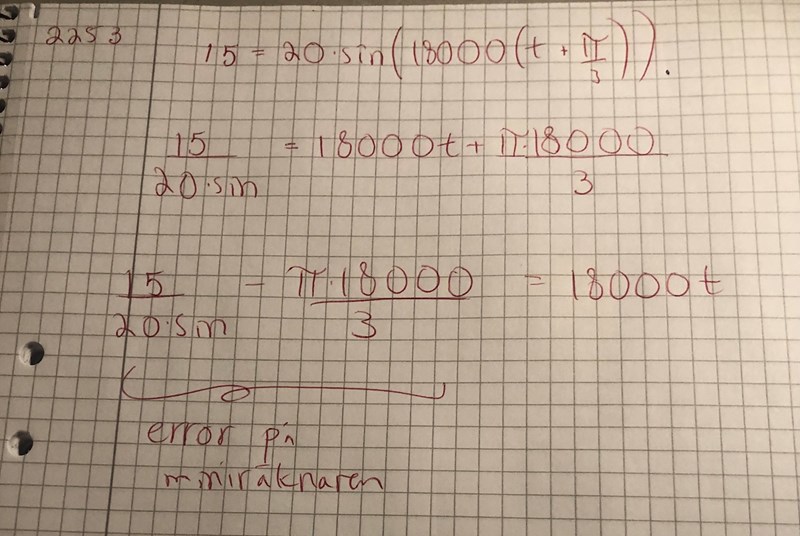 2253
15 = 20·sin(18000(t + π/3)).
15/20·sin = 18000t + π·18000/3
15/20·sin - π·18000/3 = 18000t
error på
miniräknaren